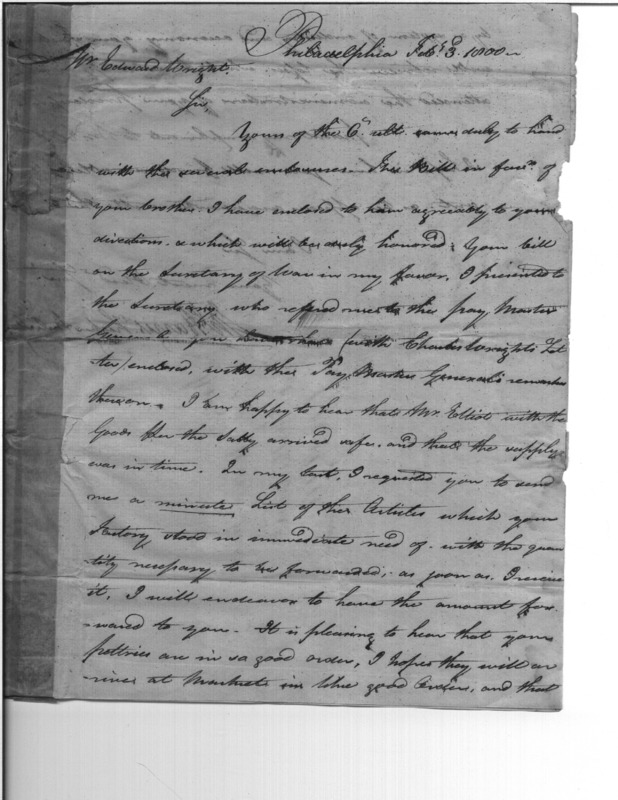 Philadelphia Feb. 3. 1800
Mr. Edward Wright.
Sir,
Yours of the 6th ult. came duly to hand
with the several enclosures. The Bill in favr. of
your brother I have enclosed to him agreeably to your
directions & which will be duly honored; Your bill
on the Secretary of War in my favor, I presented to
the Secretary who refered me to the pay Master
General you (with Charles Wright's Let
ter) enclosed, with the Pay Master General's remarks
thereon. I am happy to hear that Mr. Elliot with the
Goods Per the Sally arrived safe. and that the supply
was in time. In my last, I requested you to send
me a minute List of the Articles which your
Factory stood in immediate need of. with the quan
tity necessary to be forwarded; as soon as I receive
it, I will endeavor to have the amount for
warded to you. It is pleasing to hear that your
peltries are in so good order, I hope they will ar
rive at Market in like good Order, and that